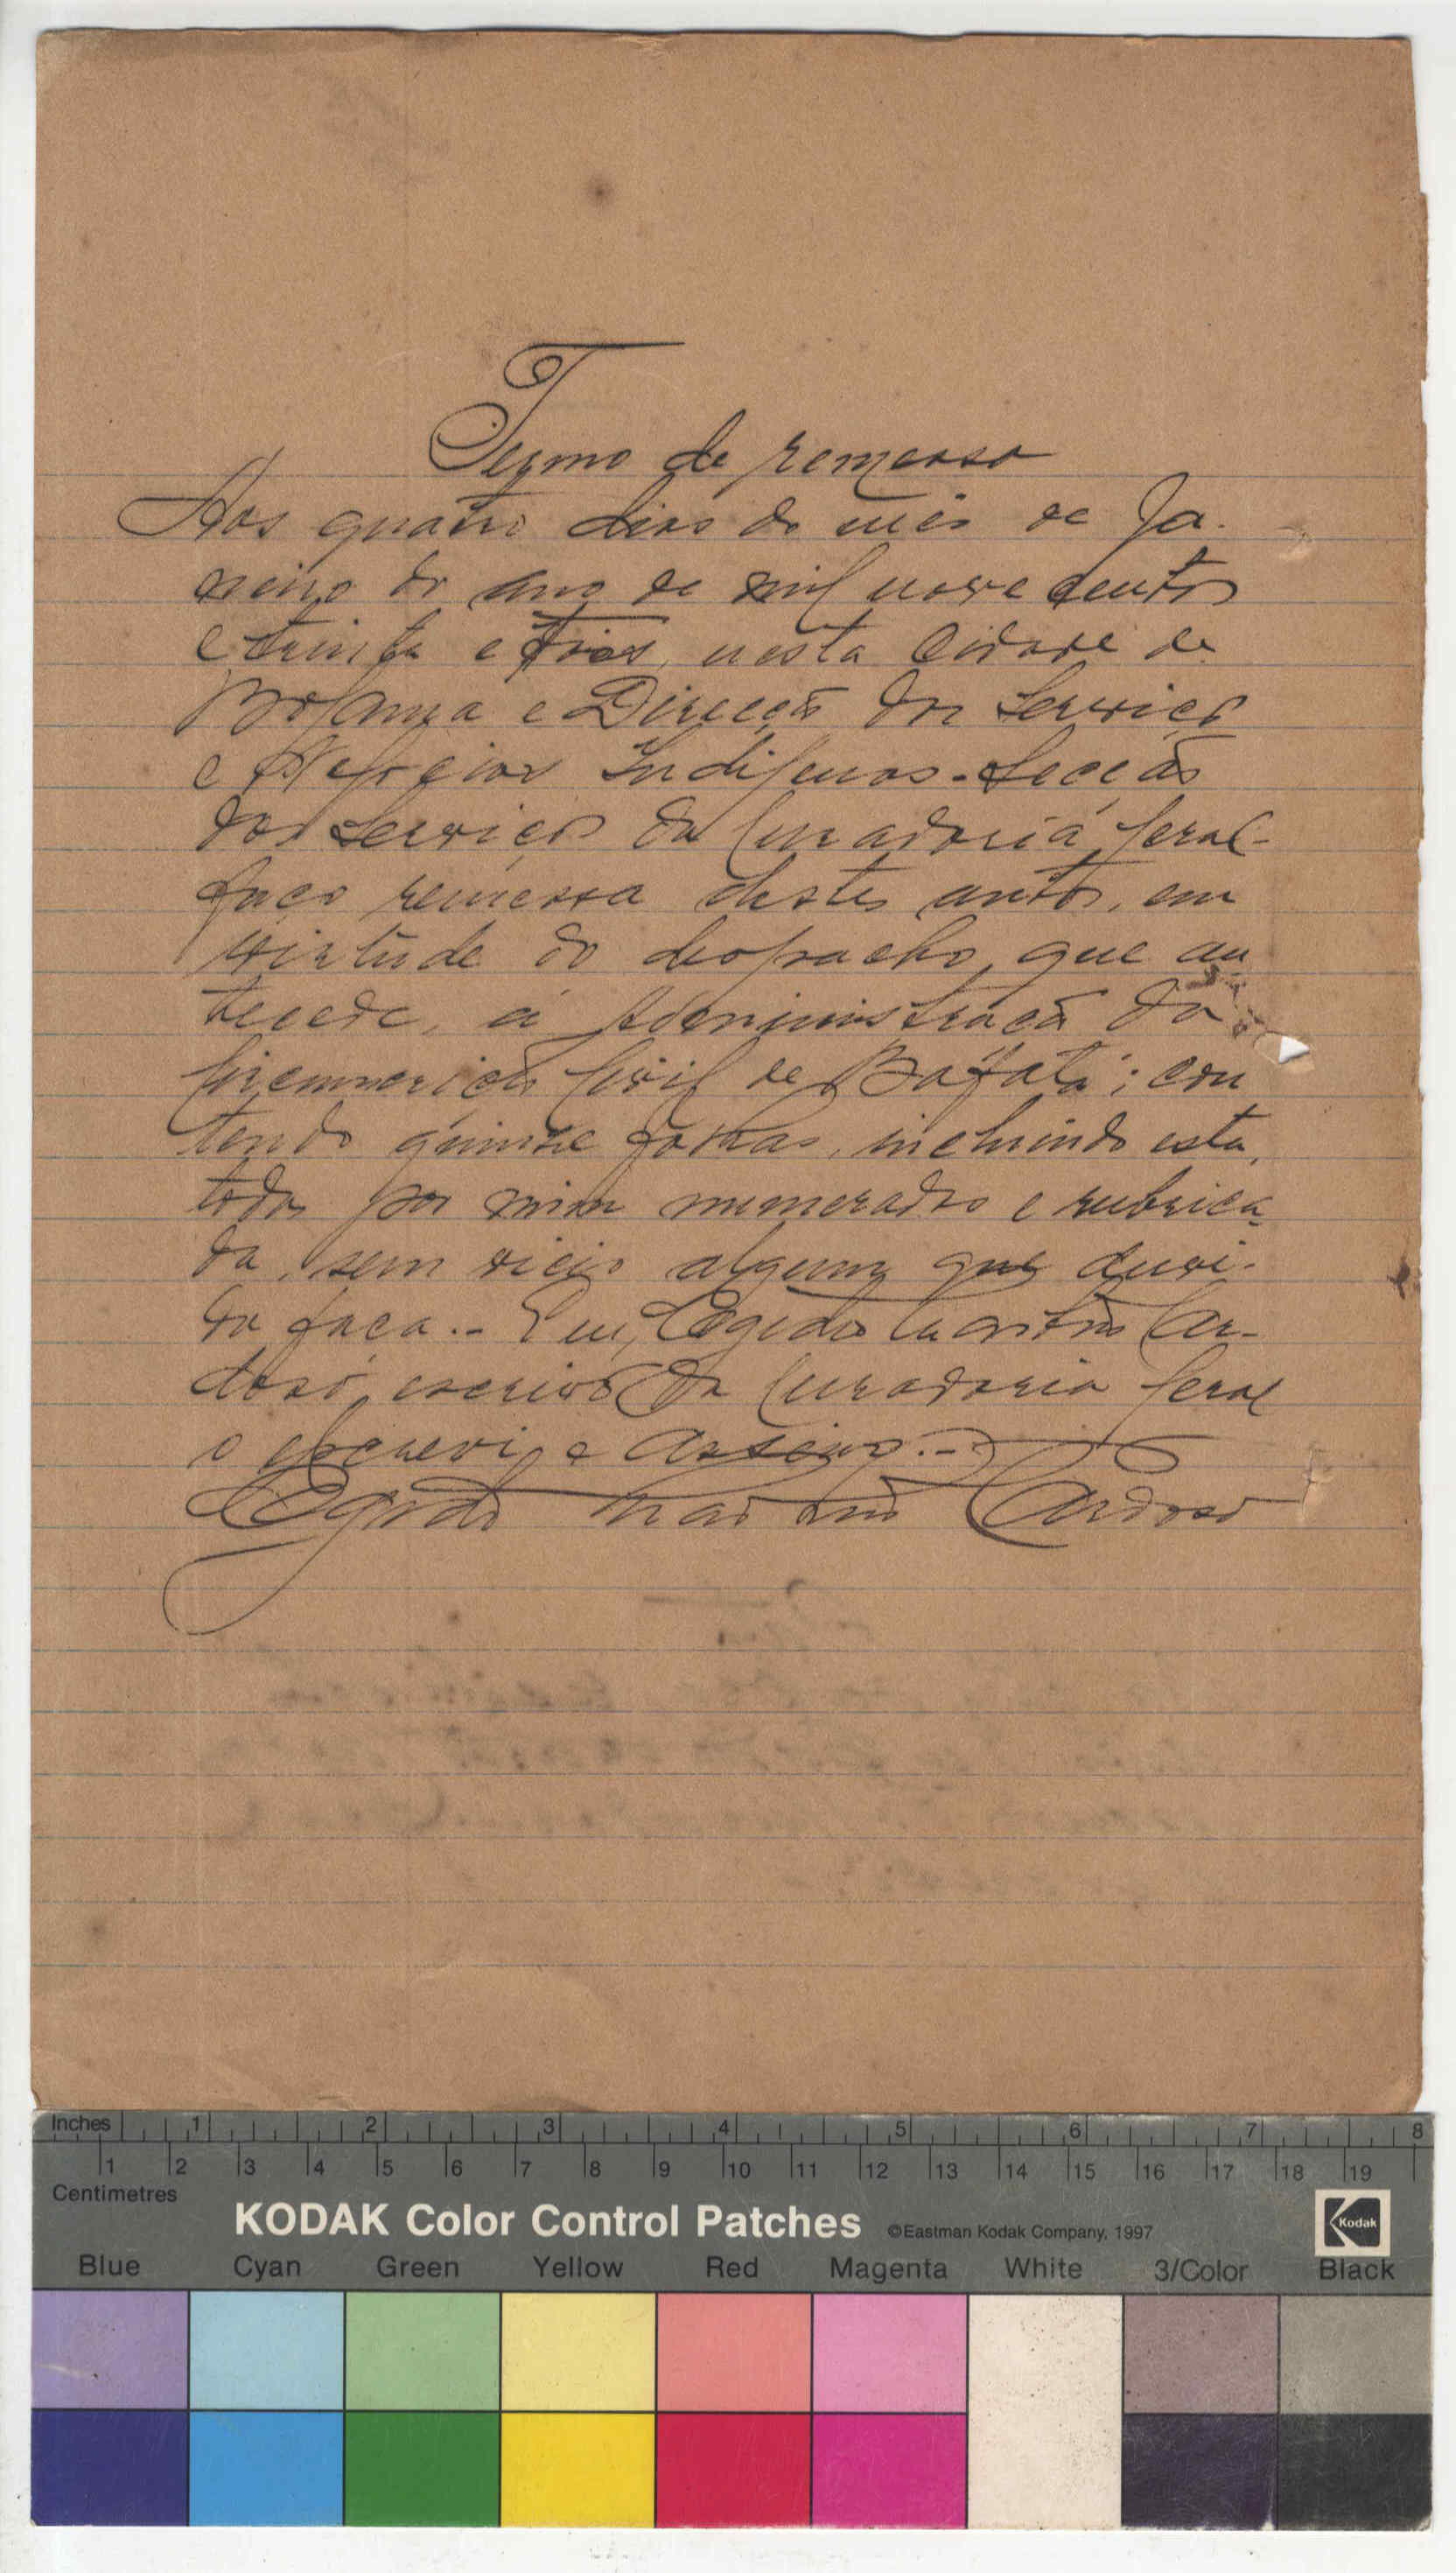 Termo de remessa
Aos quatro dias do mês de Ja-
neiro do ano de mil novecentos
e trinta e três, nesta Cidade de
Bolama e Direcção dos Serviços
e Negocios Indigenas - Secção
dos Serviços da Curadoria Geral -
faço remessa destes autos, em
virtude do despacho, que an
tecede, á Administração da
Circunscrição Civil de Bafatá; con
tendo quinze folhas, incluindo esta,
todas por mim numeradas e rubrica
da, sem vicio algum que duvi-
da faça. - Eu, Egidio Car-
doso, escrivão da Curadoria Geral
o escrevi e assino. -
Egidio Cardoso
Inches 1 2 3 4 5 6 7 8
1 2 3 4 5 6 7 8 9 10 11 12 13 14 15 16 17 18 19
Centimetres
KODAK Color Control Patches ©Eastman Kodak Company, 1997 Kodak
Blue Cyan Green Yellow Red Magenta White 3/Color Black